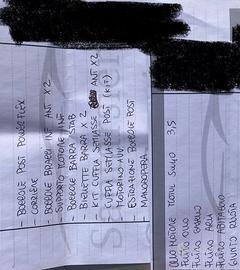 - BOCCOLE POST POWERFLEX
- CORRIERE
- BOCCOLE BRACCI INF ANT X2
- SUPPORTO MOTORE INF
- BOCCOLE BARRA STAB
- BIELLETTE BARRA X 2
- KIT CUFFIA SEMIASSE ANT X2
- CUFFIA SEMIASSE POST (KIT)
- MOTORINO
- ESTRAZIONE BOCCOLE POST
- MANODOPERA
OLIO MOTORE MOTUL 5W40 3,5
FILTRO OLIO
FILTRO
FILTRO ARIA
FILTRO ABITACOLO
GIUNTO